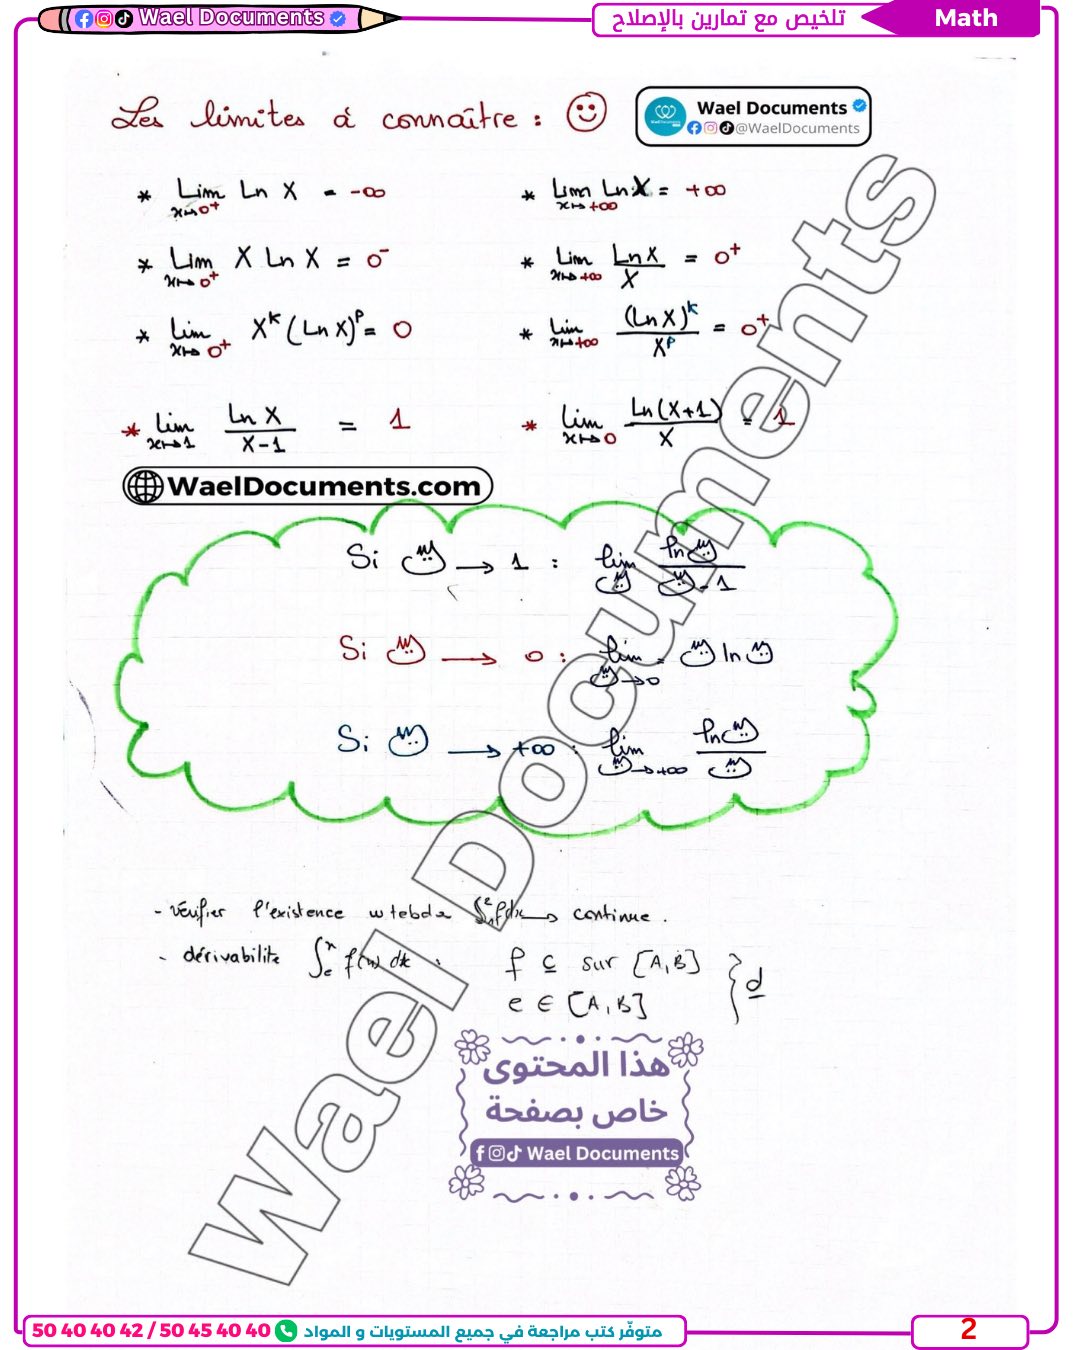 Wael Documents
تلخيص مع تمارين بالإصلاح
Math
Les limites à connaître :
Wael Documents
@WaelDocuments
* Lim x↦0⁺ Ln X = -∞
* Lim x↦+∞ Ln X = +∞
* Lim x↦0⁺ X Ln X = 0⁻
* Lim x↦+∞ Ln X / X = 0⁺
* Lim x↦0⁺ X^K (Ln X)^P = 0
* Lim x↦+∞ (Ln X)^K / X^P = 0⁺
* Lim x↦1 Ln X / X-1 = 1
* Lim x↦0 Ln(X+1) / X = 1
WaelDocuments.com
Si → 1 : lim ln / - 1
Si → 0 : lim → 0 = ln
Si → +∞ : lim → +∞ ln /
- Vérifier l'existence w tebda → continue .
- dérivabilite ∫ₑˣ f(x) dx : f c sur [A,B] } d
e ∈ [A,B]
Wael Documents
هذا المحتوى
خاص بصفحة
Wael Documents
50 40 40 42 / 50 45 40 40 متوفّر كتب مراجعة في جميع المستويات و المواد
2